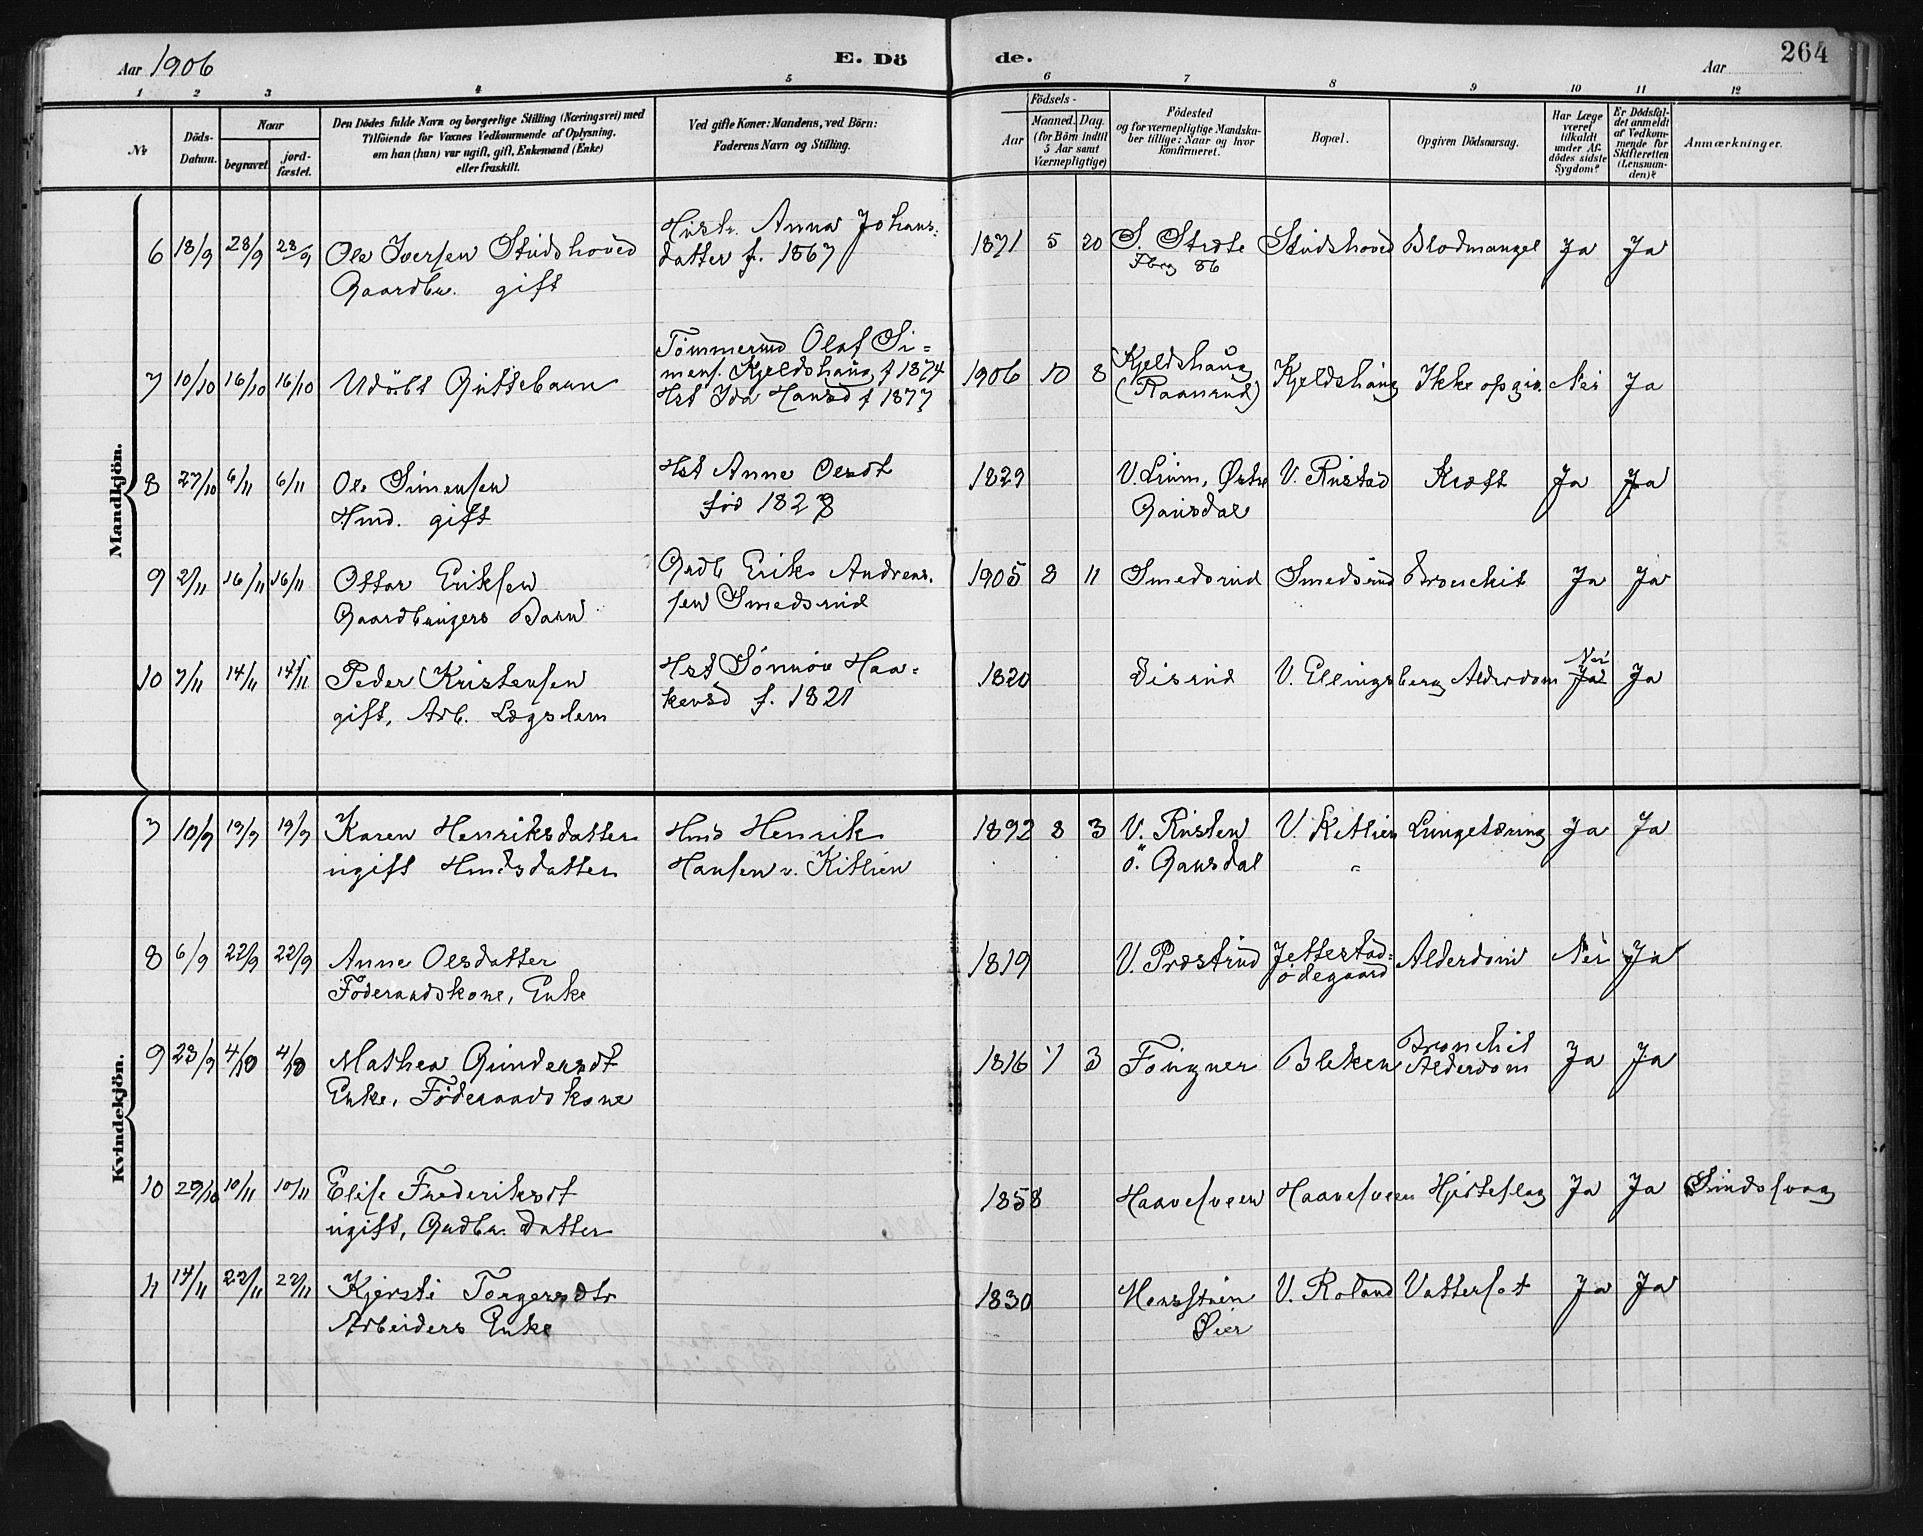 Aar 1906
E. Dö
de.
Aar
264
1 2 3 4 5 6 7 8 9 10 11 12
Nr.
Döds-
Datum.
Naar
begravet.
jord-
fæstet.
Den Dödes fulde Navn og borgerlige Stilling (Næringsvei) med
Tilföiende for Voxnes Vedkommende af Oplysning,
om han (hun) var ugift, gift, Enkemand (Enke)
eller fraskilt.
Ved gifte Koner: Mandens, ved Börn:
Faderens Navn og Stilling.
Födsels-
Aar
Maaned. Dag.
(for Börn indtil
5 Aar samt
Værnepligtige)
Födested
og for værnepligtige Mandska-
ber tillige: Naar og hvor
konfirmeret.
Bopæl.
Opgiven Dödsaarsag.
Har Læge
været
tilkaldt
under Af-
dödes sidste
Sygdom?
Er Dödsfal-
det anmeldt
af Vedkom-
mende for
Skifteretten
(Lensman-
den)?
Anmærkninger.
Mandkjön.
6 18/9 28/9 28/9 Ole Iversen Studshoved
Gaardbr. gift
Hustr. Anna Johans-
datter f. 1867
1871 5 20 S. Strøte
86
Studshoved Blodmangel Ja Ja
7 10/10 16/10 16/10 Udöbt Guttebarn
Tömmermd Olaf Si-
mens. Kjeldshaug f 1874
Hst Ida Hansd f 1877
1906 10 8 Kjeldshaug
(Raanrud)
Kjeldshaug Ikke opgiv. Nei Ja
8 27/10 6/11 6/11 Ole Simensen
Hmd. gift
Hst Anne Olsdt
fød 1828
1829 V. Lium, Østre
Gausdal
V. Rustad Kræft Ja Ja
9 2/11 16/11 16/11 Ottar Eriksen
Gaardbrugers Barn
Gadb Erik Andreas-
sen Smedsrud
1905 8 11 Smedsrud Smedsrud Bronchit Ja Ja
10 7/11 14/11 14/11 Peder Kristensen
gift, Arb. Lægslem
Hst Sönnöv Haa-
kensd f. 1821
1820 Disrud V. Ellingsberg Alderdom Nei
Ja Ja
Kvindekjön.
7 10/9 19/9 19/9 Karen Henriksdatter
ugift Hmdsdatter
Hmd Henrik
Hansen v. Kitlien
1892 8 3 V. Rusten
ö. Gausdal
V. Kitlien Lungetæring Ja Ja
"
8 6/9 22/9 22/9 Anne Olsdatter
Föderaadskone, Enke
1819 V. Præstrud Jettestad-
ödegaard
Alderdom Nei Ja
9 23/9 4/10 4/10 Mathea Gundersdt
Enke, Föderaadskone
1816 7 3 Fougner Bleken Bronchit
Alderdom Ja Ja
10 29/10 10/11 10/11 Elise Frederiksdt
ugift, Gadbr. datter
1858 Haavelsveen Haavelsveen Hjerteslag Ja Ja Sindssvag
11 14/11 22/11 22/11 Kjersti Torgersdtr
Arbeiders Enke
1830
Öier
V. Roland Vattersot Ja Ja